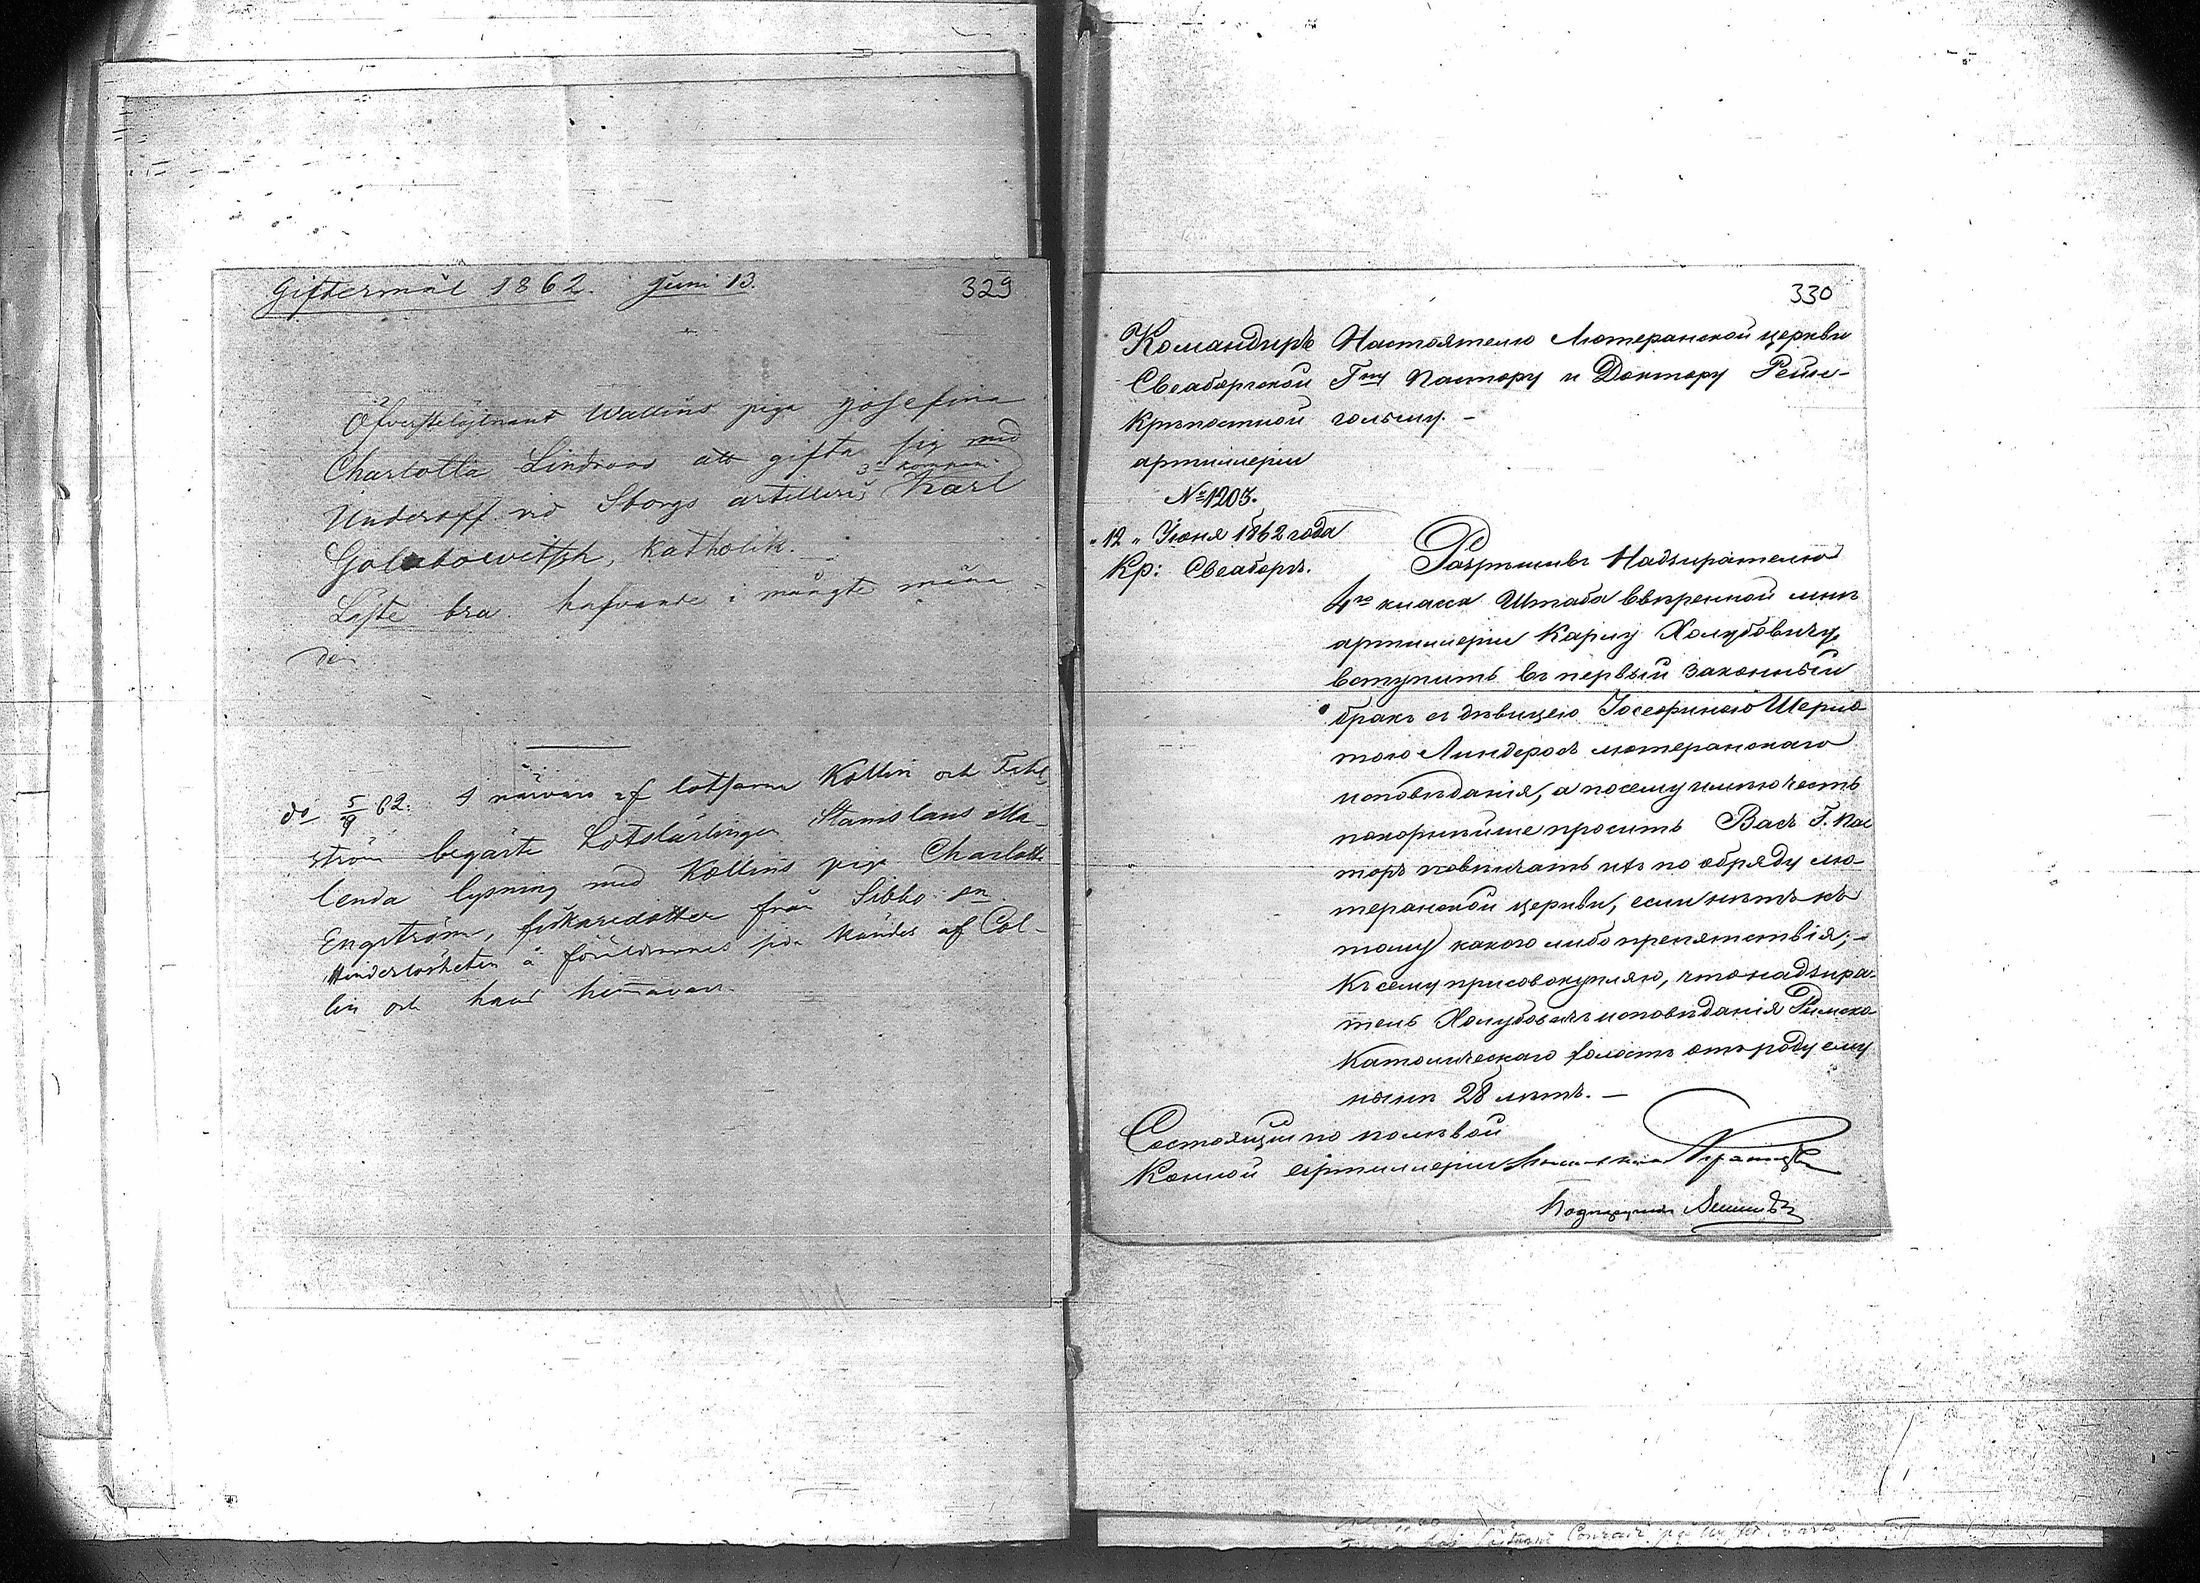 Giftermål 1862. Juni 13. 329
Öfverstelöjtnant Wallins piga Josefina
Charlotta Lindroos att gifta sig med
Underoff. vid Sborgs artilleri 3e kompani Karl
Golubowitsch, Katholik.
Löfte bra. hafvande i mångte måna
den
do 5/9 62. I närvaro af lotsarne Kollin och
ström begärte Lotslärlingen Stanislaus Ma-
lenda lysning med Kollins piga Charlotta
Engström, fiskaredotter från Sibbo.
Hinderlösheten å föräldrarnes sida kändes af Col-
lin och hans
330
Командиръ
Свеаборгской
Крѣпостной
артиллеріи
№ 1203.
"12" Іюня 1862 года
Кр: Свеаборгъ.
Настоятелю Лютеранской церкви
Гну Пастору и Доктору Рейн-
гольму. –
Разрѣшивъ Надзирателю
4го класса Штаба ввѣренной мнѣ
артиллеріи Карлу Холубовичу
вступить въ первый законный
бракъ съ дѣвицею Іосефиною Шерло
тою Линдросъ лютеранскаго
исповѣданія, а посему имѣю честь
покорнѣйше просить Васъ Г. Пас
торъ повѣнчать ихъ по обряду лю-
теранской церкви, если нѣтъ къ
тому какого либо препятствія; –
Къ сему присовокупляю, что надзира-
тель Холубовичъ исповѣданія Римско
Католическаго холостъ отъ роду ему
нынѣ 28 лѣтъ. –
Состоящій по полевой
Конной артиллеріи
Подпоручикъ